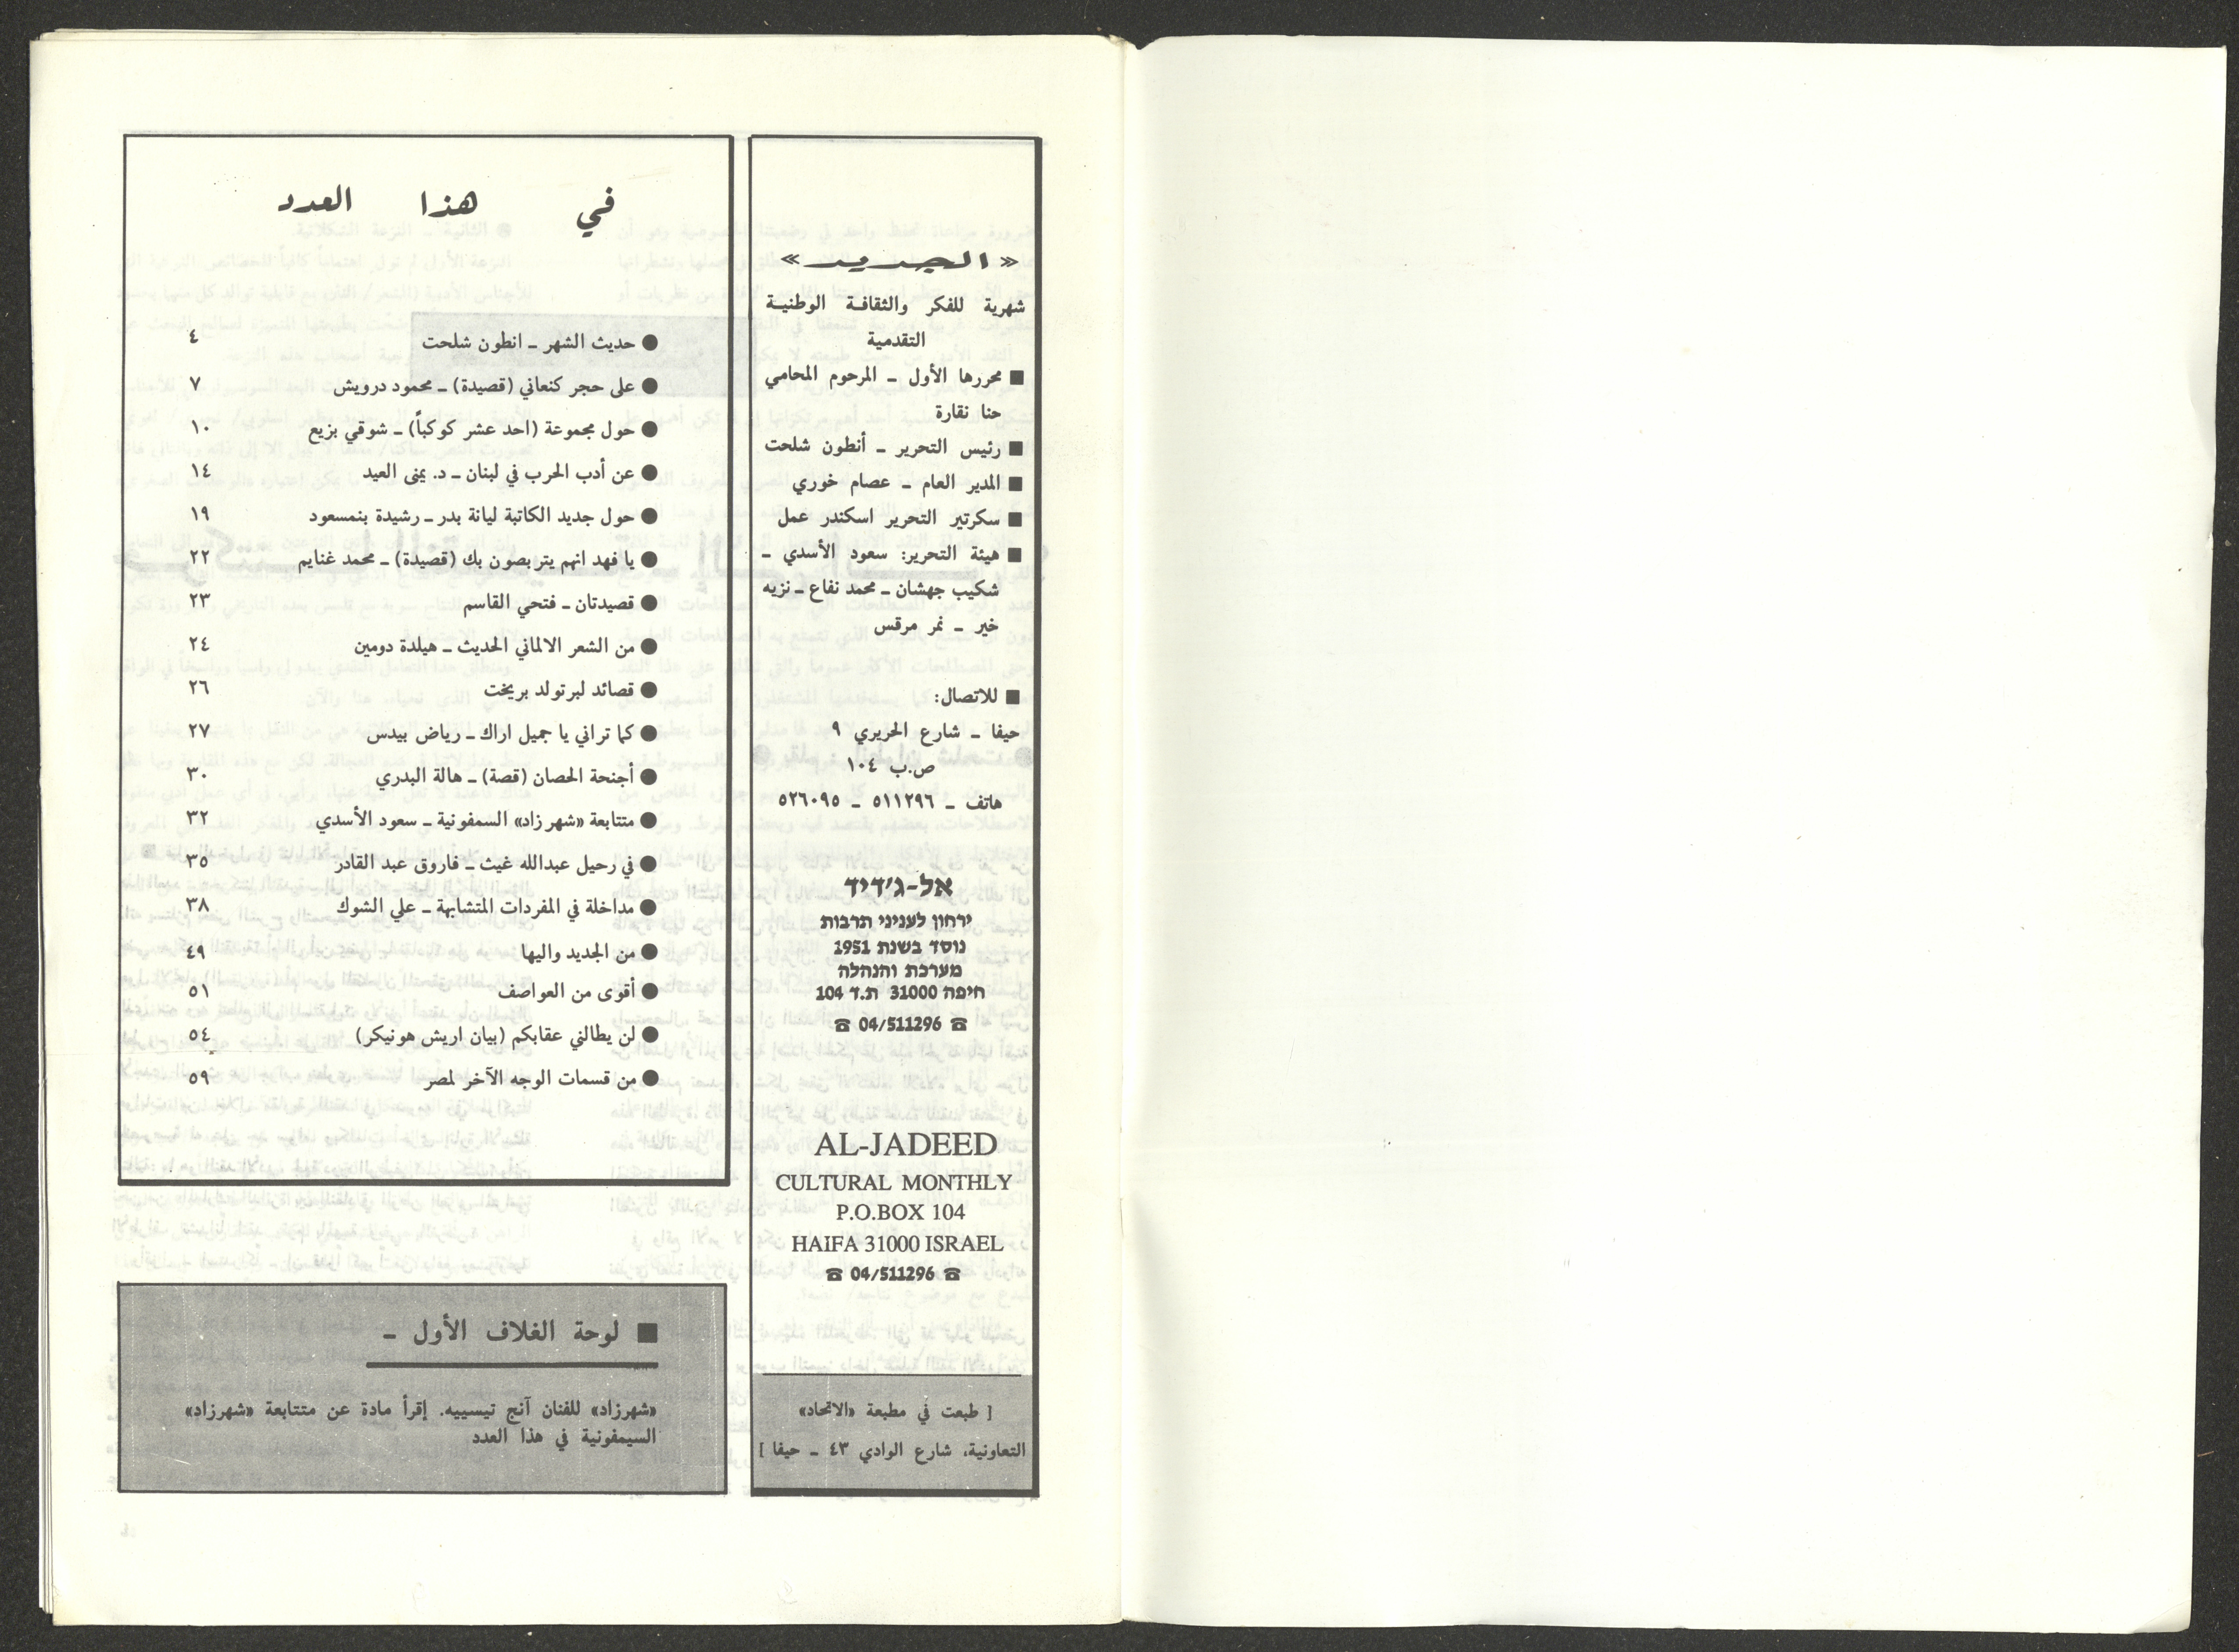 «الجديد»
شهرية للفكر والثقافة الوطنية
التقدمية
■ محررها الأول ـ المرحوم المحامي
حنا نقارة
■ رئيس التحرير ـ أنطون شلحت
■ المدير العام ـ عصام خوري
■ سكرتير التحرير اسكندر عمل
■ هيئة التحرير: سعود الأسدي ـ
شكيب جهشان ـ محمد نفاع ـ نزيه
خير ـ نمر مرقس
■ للاتصال:
حيفا ـ شارع الحريري ٩
ص.ب ١٠٤
هاتف ـ ٥١١٢٩٦ ـ ٥٢٦٠٩٥
אל-ג'דיד
ירחון לעניני תרבות
נוסד בשנת 1951
מערכת והנהלה
חיפה 31000 ת.ד 104
☎ 04/511296 ☎
AL-JADEED
CULTURAL MONTHLY
P.O.BOX 104
HAIFA 31000 ISRAEL
☎ 04/511296 ☎
[ طبعت في مطبعة «الاتحاد»
التعاونية، شارع الوادي ٤٣ ـ حيفا ]
في هذا العدد
● حديث الشهر ـ انطون شلحت ٤
● على حجر كنعاني (قصيدة) ـ محمود درويش ٧
● حول مجموعة (احد عشر كوكباً) ـ شوقي بزيع ١٠
● عن أدب الحرب في لبنان ـ د. يمنى العيد ١٤
● حول جديد الكاتبة ليانة بدر ـ رشيدة بنمسعود ١٩
● يا فهد انهم يتربصون بك (قصيدة) ـ محمد غنايم ٢٢
● قصيدتان ـ فتحي القاسم ٢٣
● من الشعر الالماني الحديث ـ هيلدة دومين ٢٤
● قصائد لبرتولد بريخت ٢٦
● كما تراني يا جميل اراك ـ رياض بيدس ٢٧
● أجنحة الحصان (قصة) ـ هالة البدري ٣٠
● متتابعة «شهرزاد» السمفونية ـ سعود الأسدي ٣٢
● في رحيل عبدالله غيث ـ فاروق عبد القادر ٣٥
● مداخلة في المفردات المتشابهة ـ علي الشوك ٣٨
● من الجديد واليها ٤٩
● أقوى من العواصف ٥١
● لن يطالني عقابكم (بيان اريش هونيكر) ٥٤
● من قسمات الوجه الآخر لمصر ٥٩
■ لوحة الغلاف الأول ـ
«شهرزاد» للفنان آنج تيسييه. إقرأ مادة عن متتابعة «شهرزاد»
السيمفونية في هذا العدد